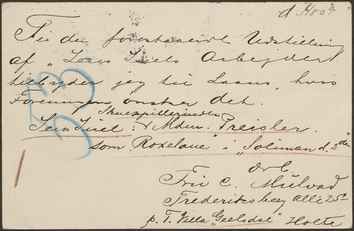 Til den forestaaende Udstilling
af "Jens Juels Arbejder"
tilbyder jeg til Laans, hvis
Foreningen ønsker det.
Skuespillerinden
Jens Juel: Mdm. Preisler.
som Roxelane i "Soliman d. 2den"
Frk C. Mülvad
Frederiksberg Allé 25
p. T. Villa "Geelsdal" Holte
53